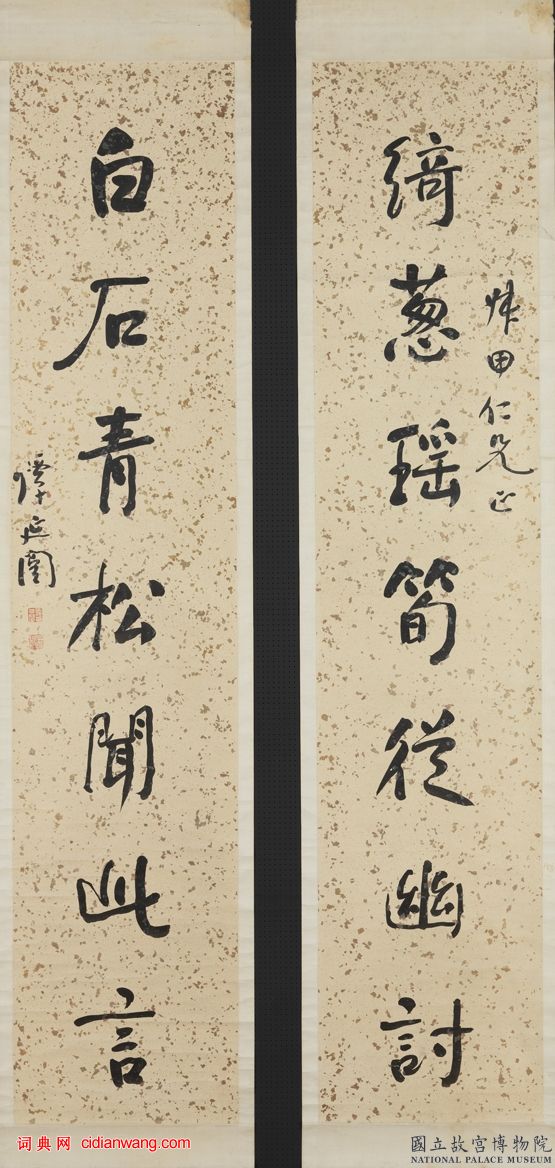 綺蔥瑤筍從幽討
田仁兄正
白石青松聞此言
譚延闓
國立故宮博物院
NATIONAL PALACE MUSEUM
词典网 cidianwang.com